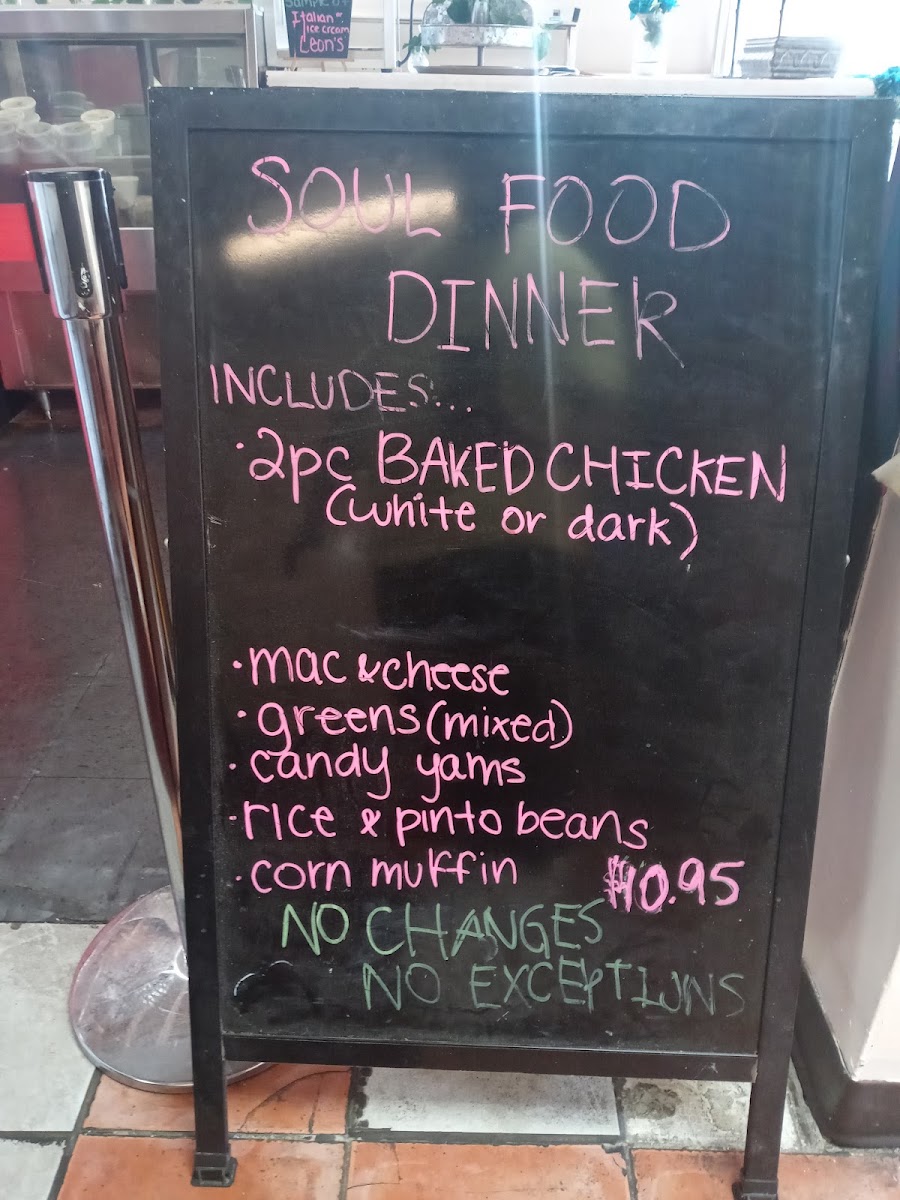 SAMPLE OF
Italian
ice cream
Leon's
SOUL FOOD
DINNER
INCLUDES...
· 2pc BAKED CHICKEN
(white or dark)
· mac & cheese
· greens (mixed)
· candy yams
· rice & pinto beans
· corn muffin $10.95
NO CHANGES
NO EXCEPTIONS